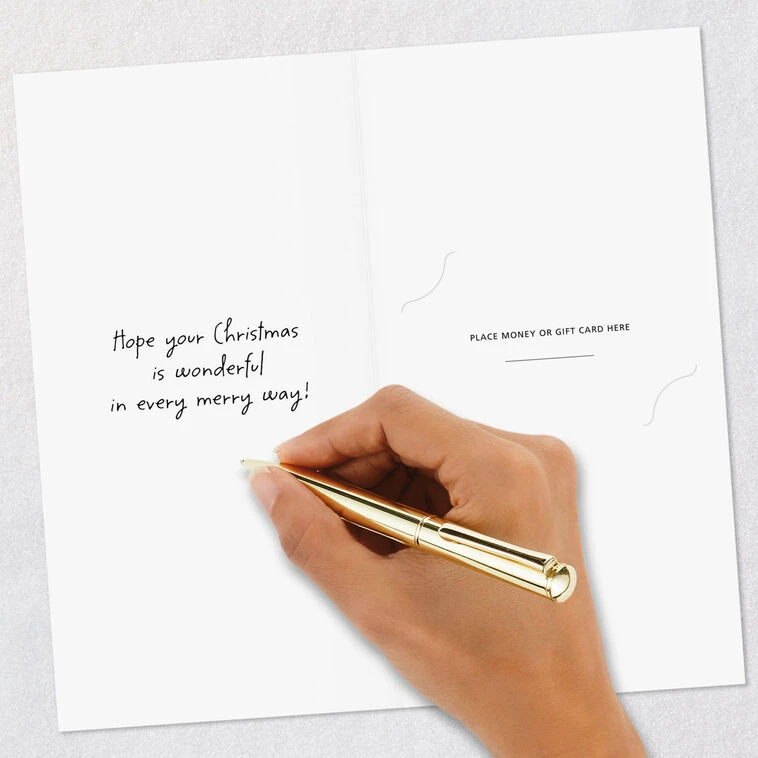 Hope your Christmas
is wonderful
in every merry way!
PLACE MONEY OR GIFT CARD HERE